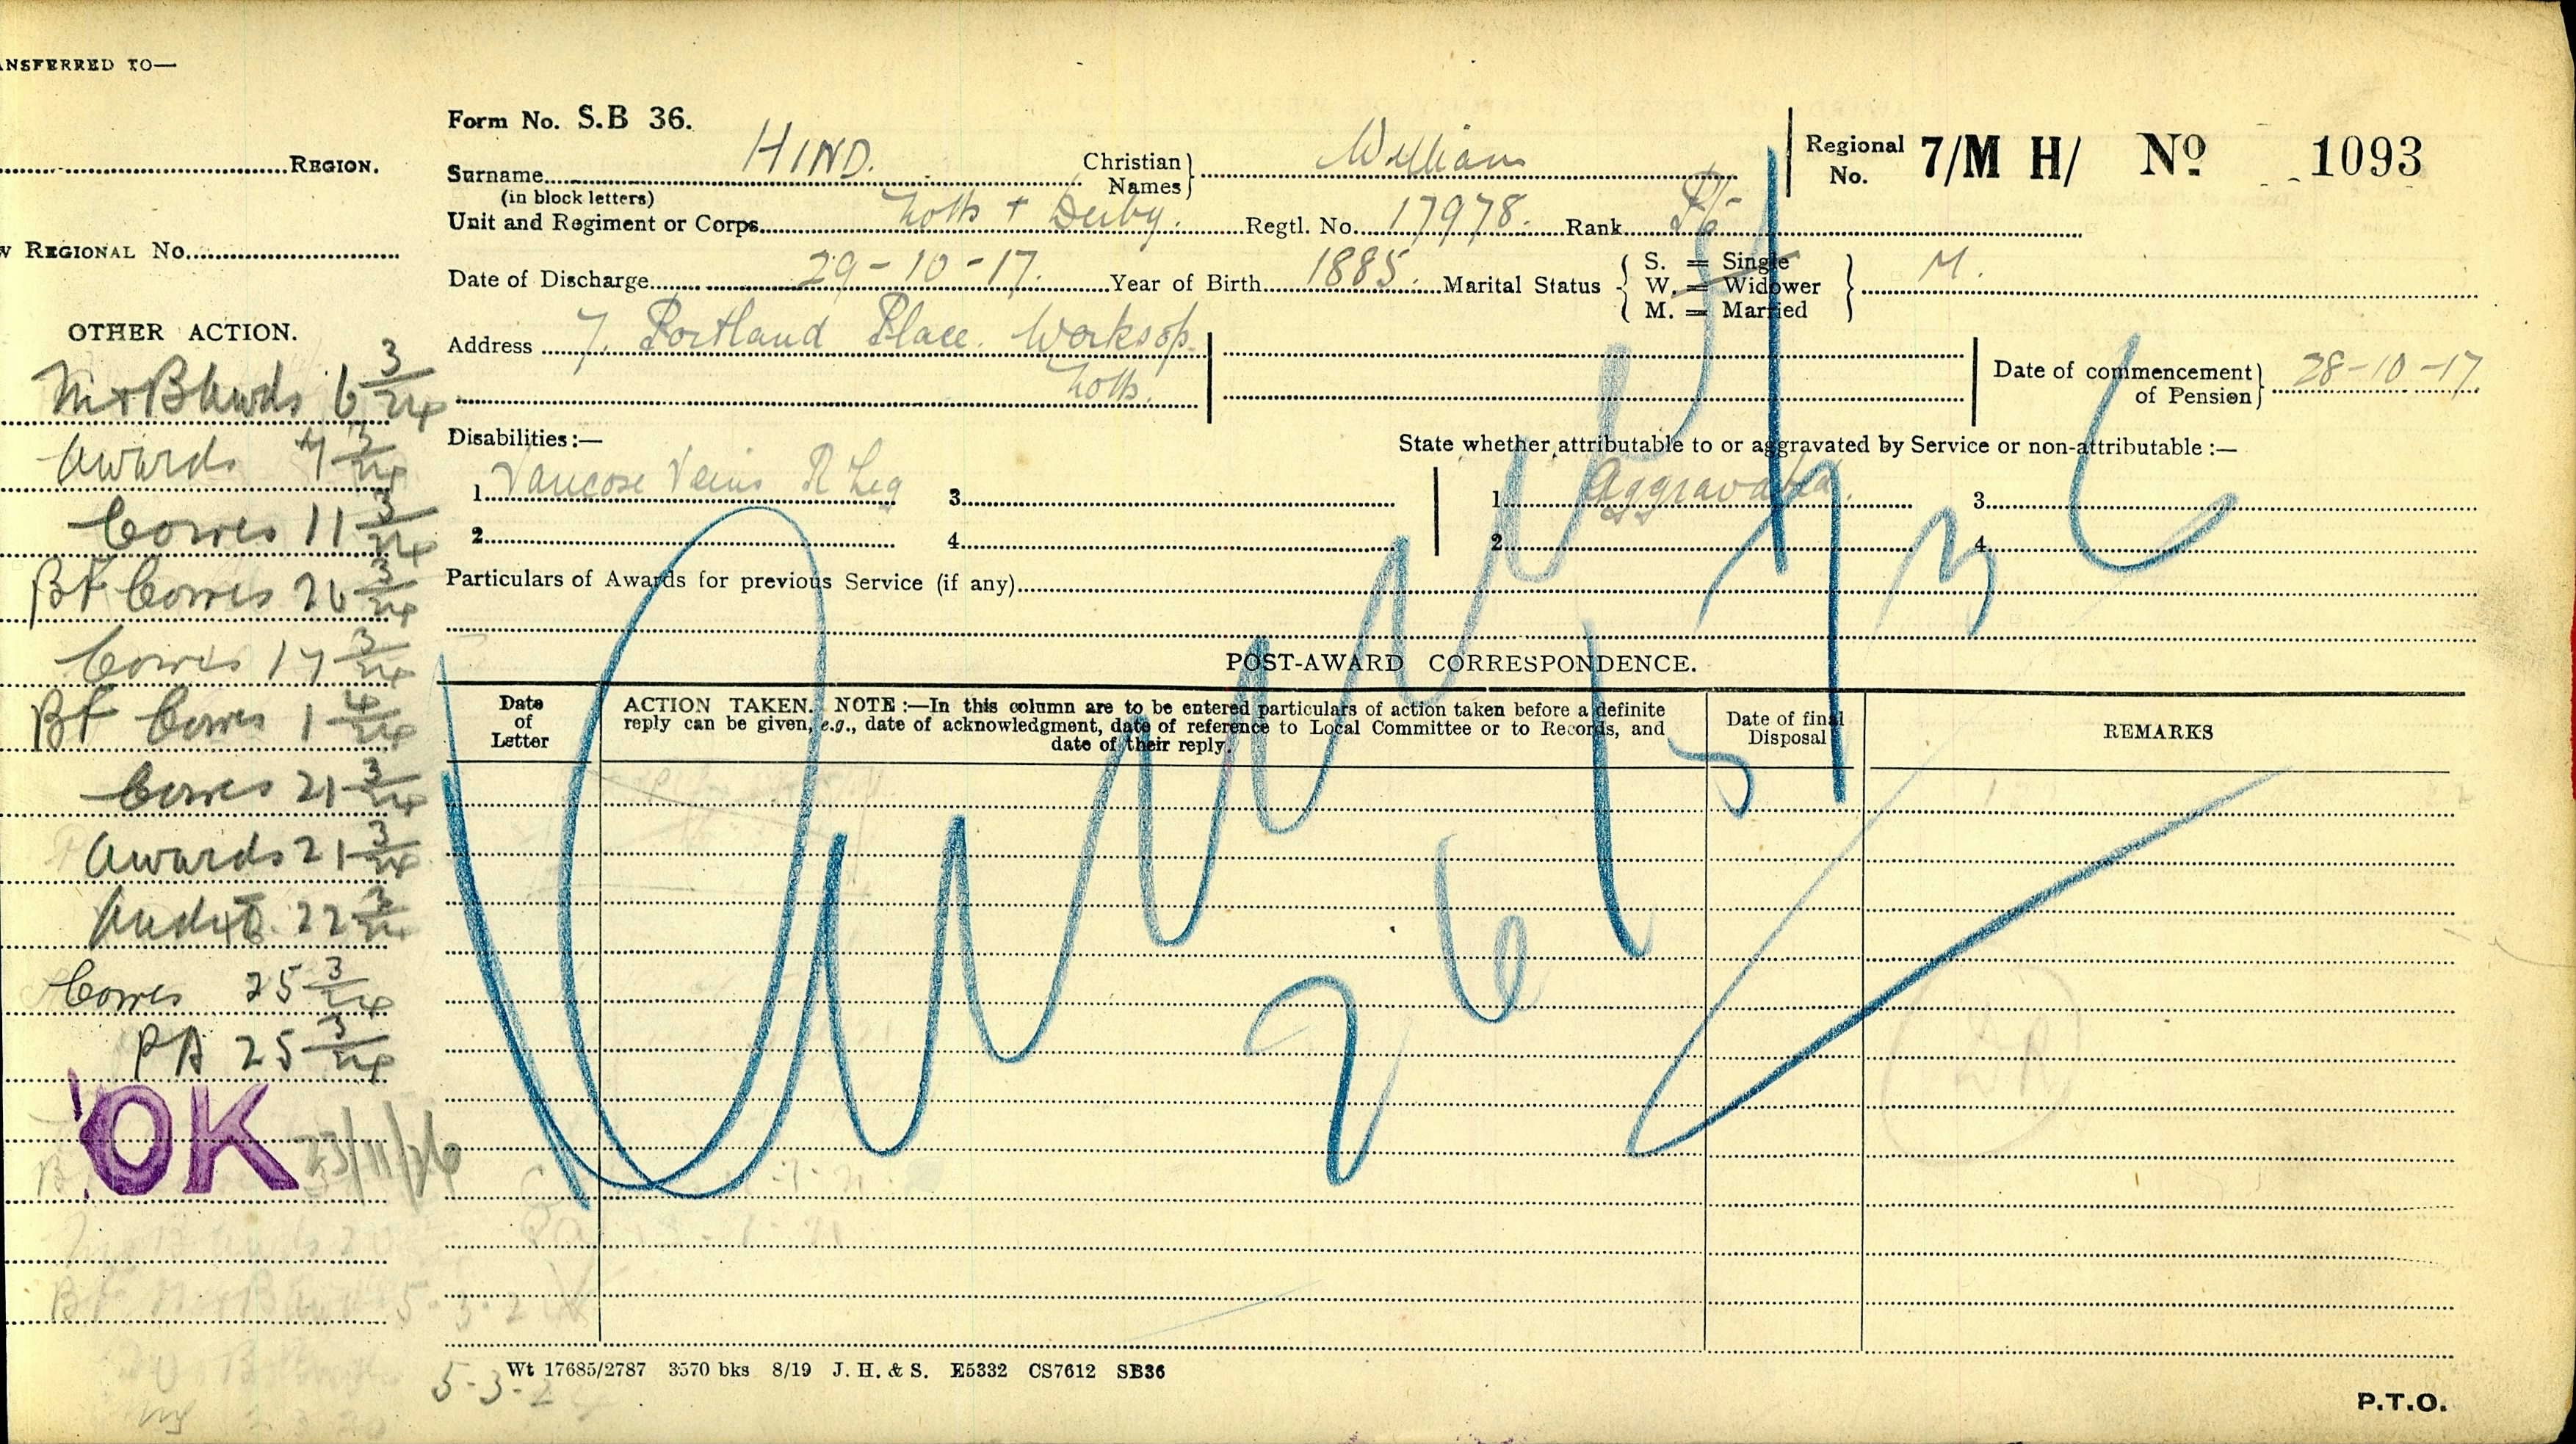 ANSFERRED TO—
REGION.
W REGIONAL No.
OTHER ACTION.
M+B Awds 6 3/24
Awards 7 3/24
Corres 11 3/24
BF Corres 26 3/24
Corres 17 3/24
BF Corres 1 4/24
Corres 21 3/24
Awards 21 3/24
Audit 22 3/24
Corres 25 3/24
PA 25 3/24
OK 23/11/26
Form No. S.B 36.
Surname HIND. Christian Names} William
(in block letters)
Regional No. 7/M H/ No 1093
Unit and Regiment or Corps Notts + Derby. Regtl. No. 17978. Rank Pte
Date of Discharge 29-10-17. Year of Birth 1885. Marital Status { S. = Single W. = Widower M. = Married } M.
Address 7. Portland Place. Worksop.
Notts.
Date of commencement of Pension} 28-10-17
Disabilities:—
State whether attributable to or aggravated by Service or non-attributable :—
1. Varicose Veins R Leg 3. 1. Aggravated. 3.
2. 4. 2. 4.
Particulars of Awards for previous Service (if any)
POST-AWARD CORRESPONDENCE.
Date of Letter
ACTION TAKEN. NOTE :—In this column are to be entered particulars of action taken before a definite
reply can be given, e.g., date of acknowledgment, date of reference to Local Committee or to Records, and
date of their reply.
Date of final Disposal
REMARKS
5-3-2
Wt 17685/2787 3570 bks 8/19 J. H. & S. E5332 CS7612 SB36
P.T.O.